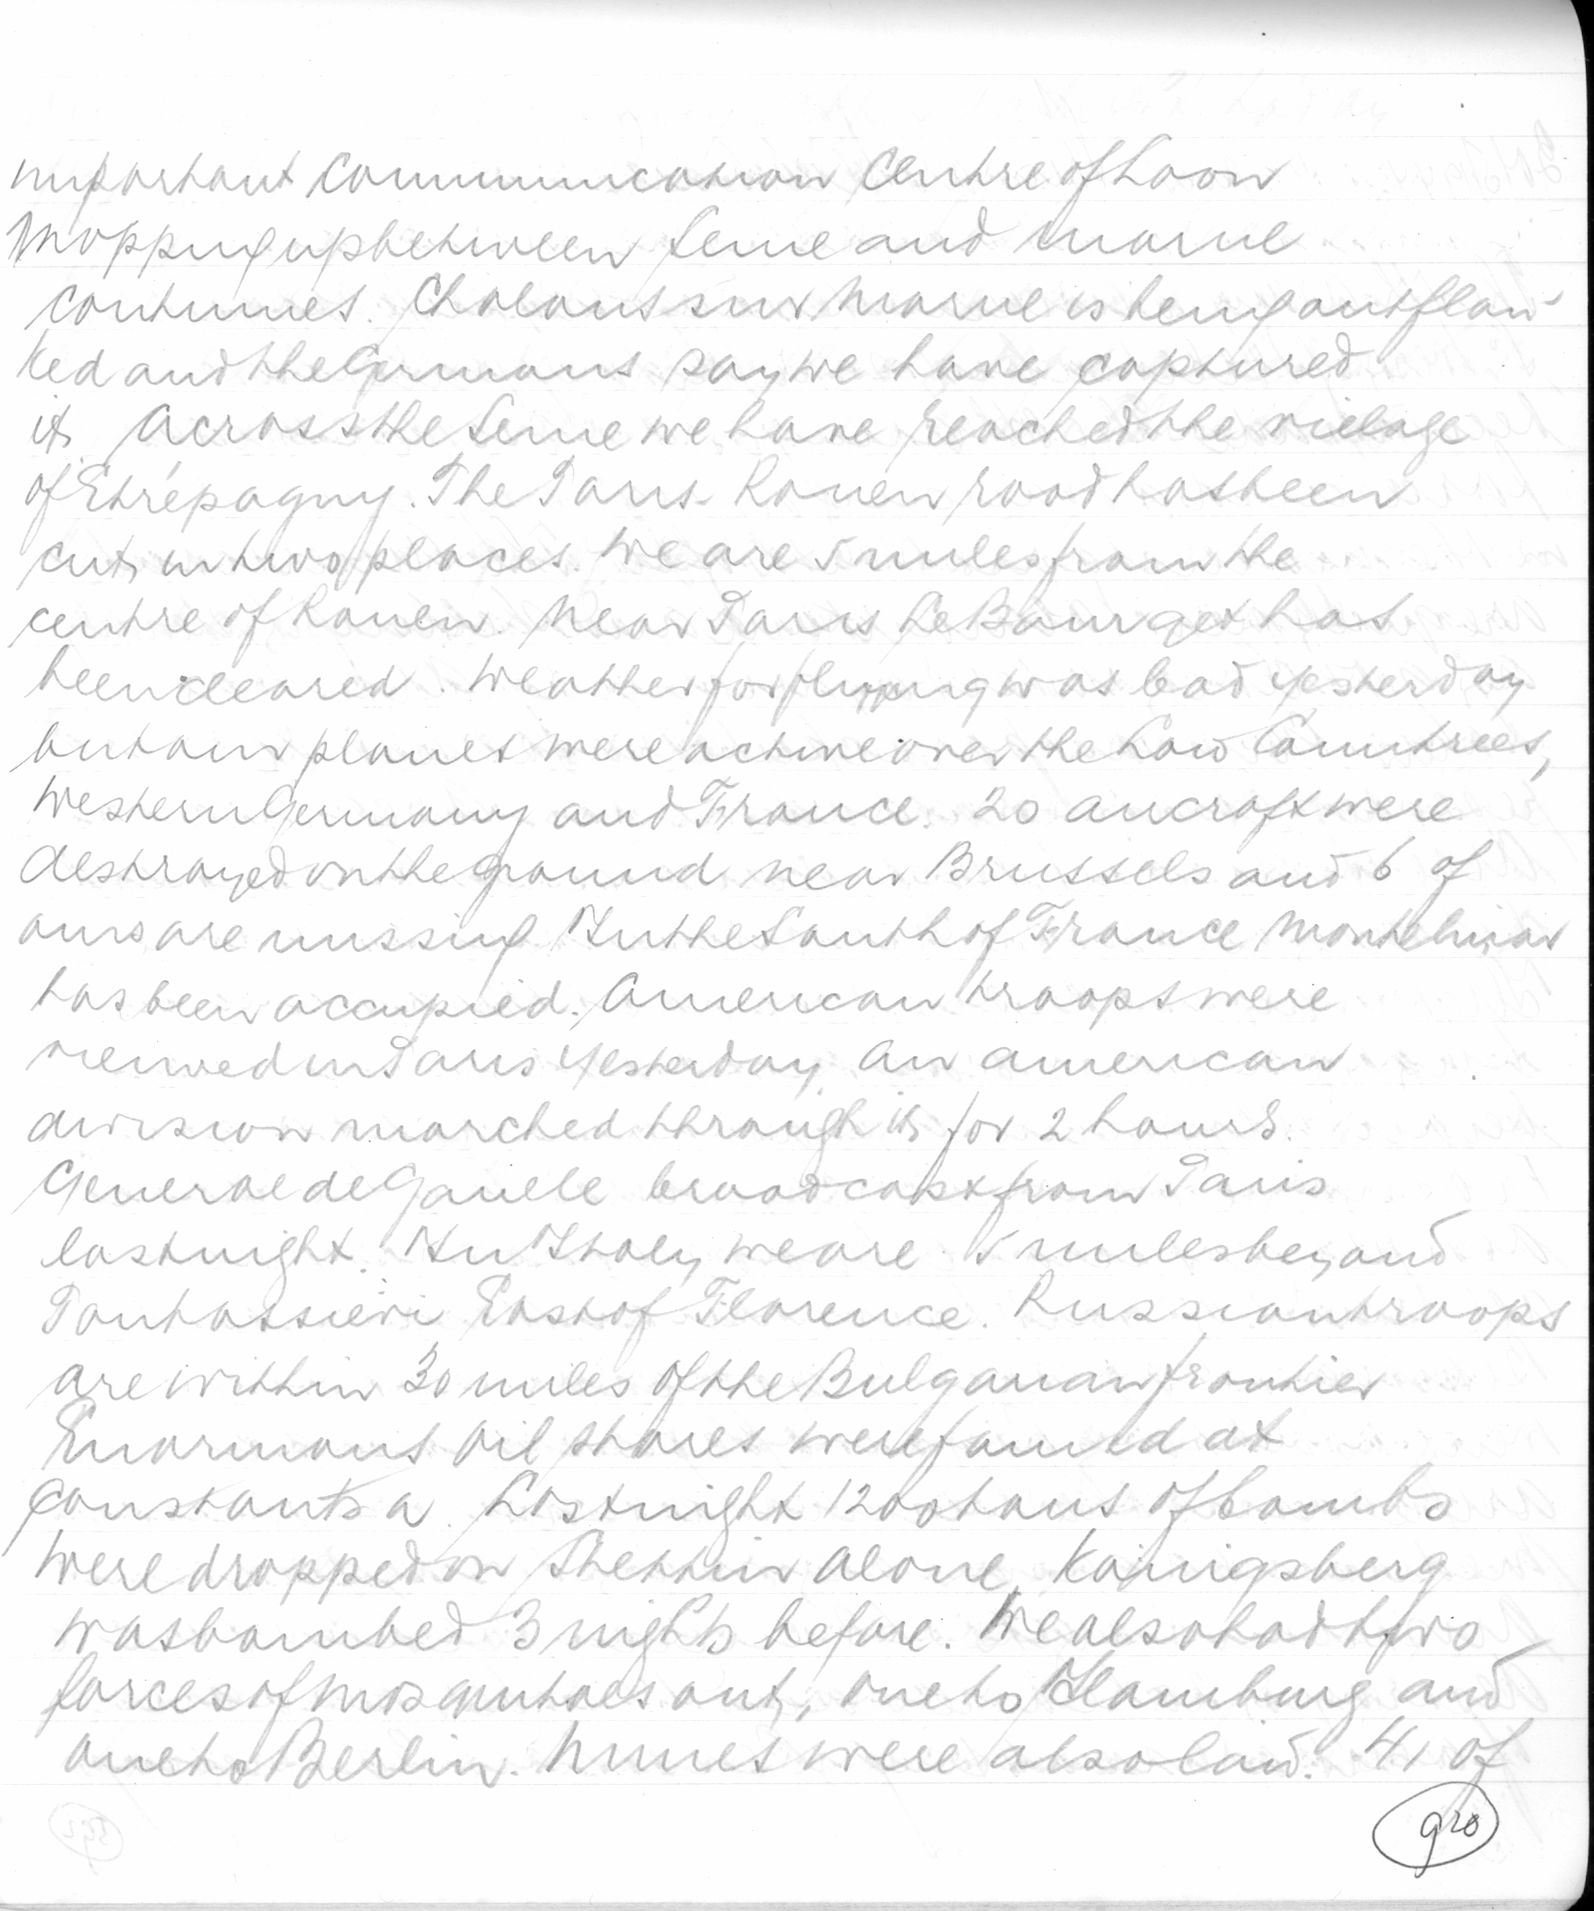 important communication centre of Laon
Mopping up between Seine and Marne
continues. Chalons sur Marne is being outflan-
ked and the Germans say we have captured
it. Across the Seine we have reached the village
of Etrépagny. The Paris-Rouen road has been
cut in two places. We are 5 miles from the
centre of Rouen. Near Paris Le Bourget has
been cleared. Weather for flying was bad yesterday
but our planes were active over the Low Countrees,
Western Germany and France. 20 aircraft were
destroyed on the ground near Brussels and 6 of
ours are missing. In the South of France Montelimar
has been occupied. American troops were
viewed in Paris yesterday. An American
division marched through it for 2 hours.
General de Gaulle broadcast from Paris
last night. In Italy we are 5 miles beyond
Pontassievi East of Florence. Russian troops
are within 30 miles of the Bulgarian frontier
Enormous oil stores were found at
Constantsa. Last night 1200 tons of bombs
were dropped on Stettin alone, Königsberg
was bombed 3 nights before. We also had two
forces of mosquitoes out, one to Hamburg and
one to Berlin. Mines were also laid. 41 of
920